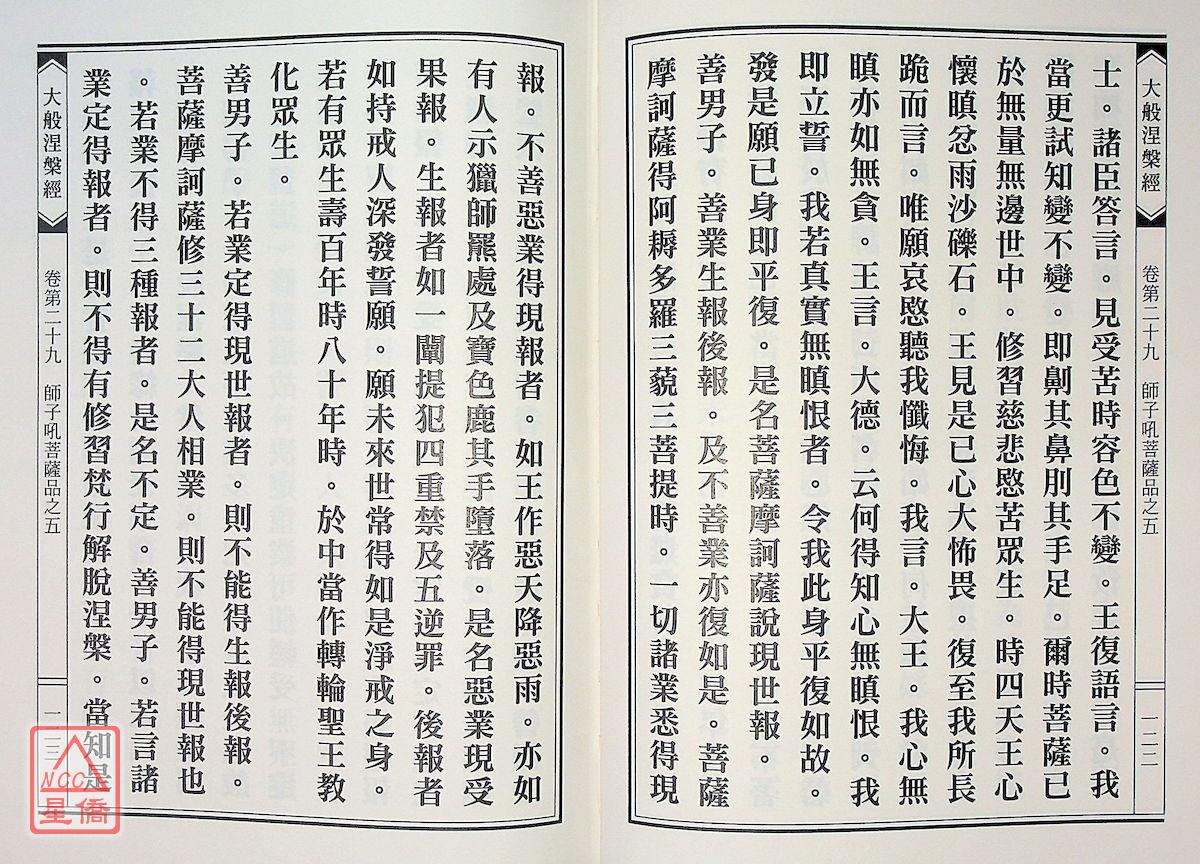 大般涅槃經
卷第二十九　師子吼菩薩品之五
一二二
士。諸臣答言。見受苦時容色不變。王復語言。我
當更試知變不變。即劓其鼻刖其手足。爾時菩薩已
於無量無邊世中。修習慈悲愍苦眾生。時四天王心
懷瞋忿雨沙礫石。王見是已心大怖畏。復至我所長
跪而言。唯願哀愍聽我懺悔。我言。大王。我心無
瞋亦如無貪。王言。大德。云何得知心無瞋恨。我
即立誓。我若真實無瞋恨者。令我此身平復如故。
發是願已身即平復。是名菩薩摩訶薩說現世報。
善男子。善業生報後報。及不善業亦復如是。菩薩
摩訶薩得阿耨多羅三藐三菩提時。一切諸業悉得現
報。不善惡業得現報者。如王作惡天降惡雨。亦如
有人示獵師羆處及寶色鹿其手墮落。是名惡業現受
果報。生報者如一闡提犯四重禁及五逆罪。後報者
如持戒人深發誓願。願未來世常得如是淨戒之身。
若有眾生壽百年時八十年時。於中當作轉輪聖王教
化眾生。
善男子。若業定得現世報者。則不能得生報後報。
菩薩摩訶薩修三十二大人相業。則不能得現世報也
。若業不得三種報者。是名不定。善男子。若言諸
業定得報者。則不得有修習梵行解脫涅槃。當知是
大般涅槃經
卷第二十九　師子吼菩薩品之五
一二三
NCC
星僑